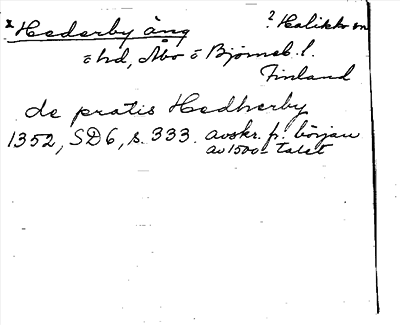 x Hederby äng ? Halikko sn
o hd, Åbo o Björneb. l.
Finland
de pratis Hedherby
1352, SD 6, s. 333. avskr. fr. början
av 1500-talet